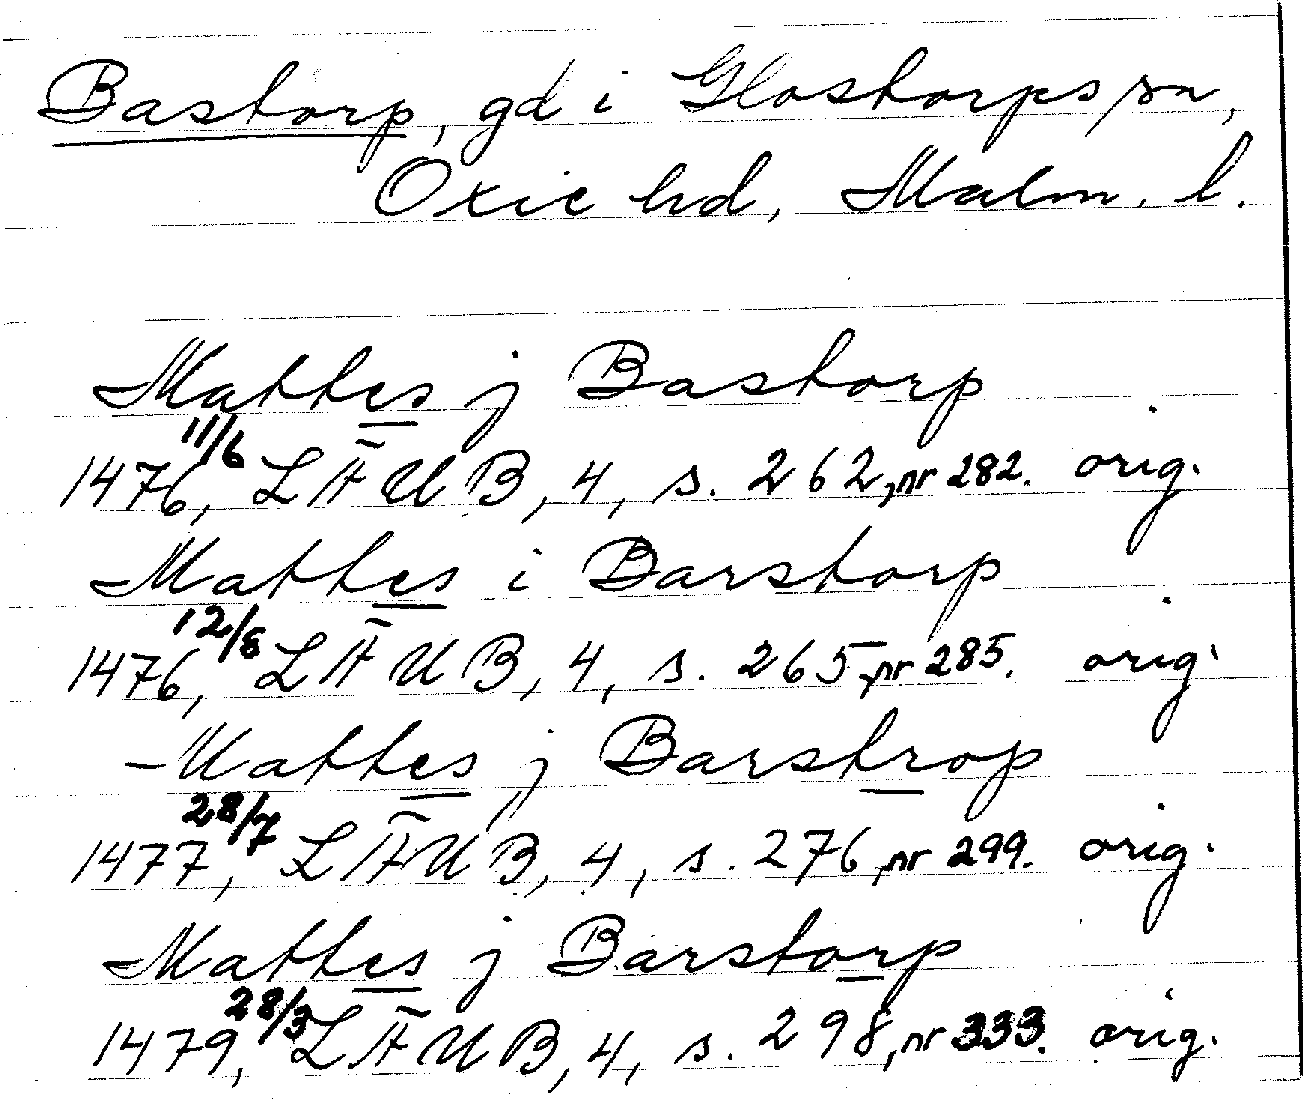 Bastorp, gd i Glostorps sn,
Oxie hd, Malm. l.
Mattes j Bastorp
1476 11/6, LÄUB, 4, s. 262, nr 282. orig.
Mattes i Barstorp
1476 12/8, LÄUB, 4, s. 265, nr 285. orig.
Mattes j Barstrop
1477 28/7, LÄUB, 4, s. 276, nr 299. orig.
Mattes j Barstorp
1479 28/3, LÄUB, 4, s. 298, nr 333. orig.